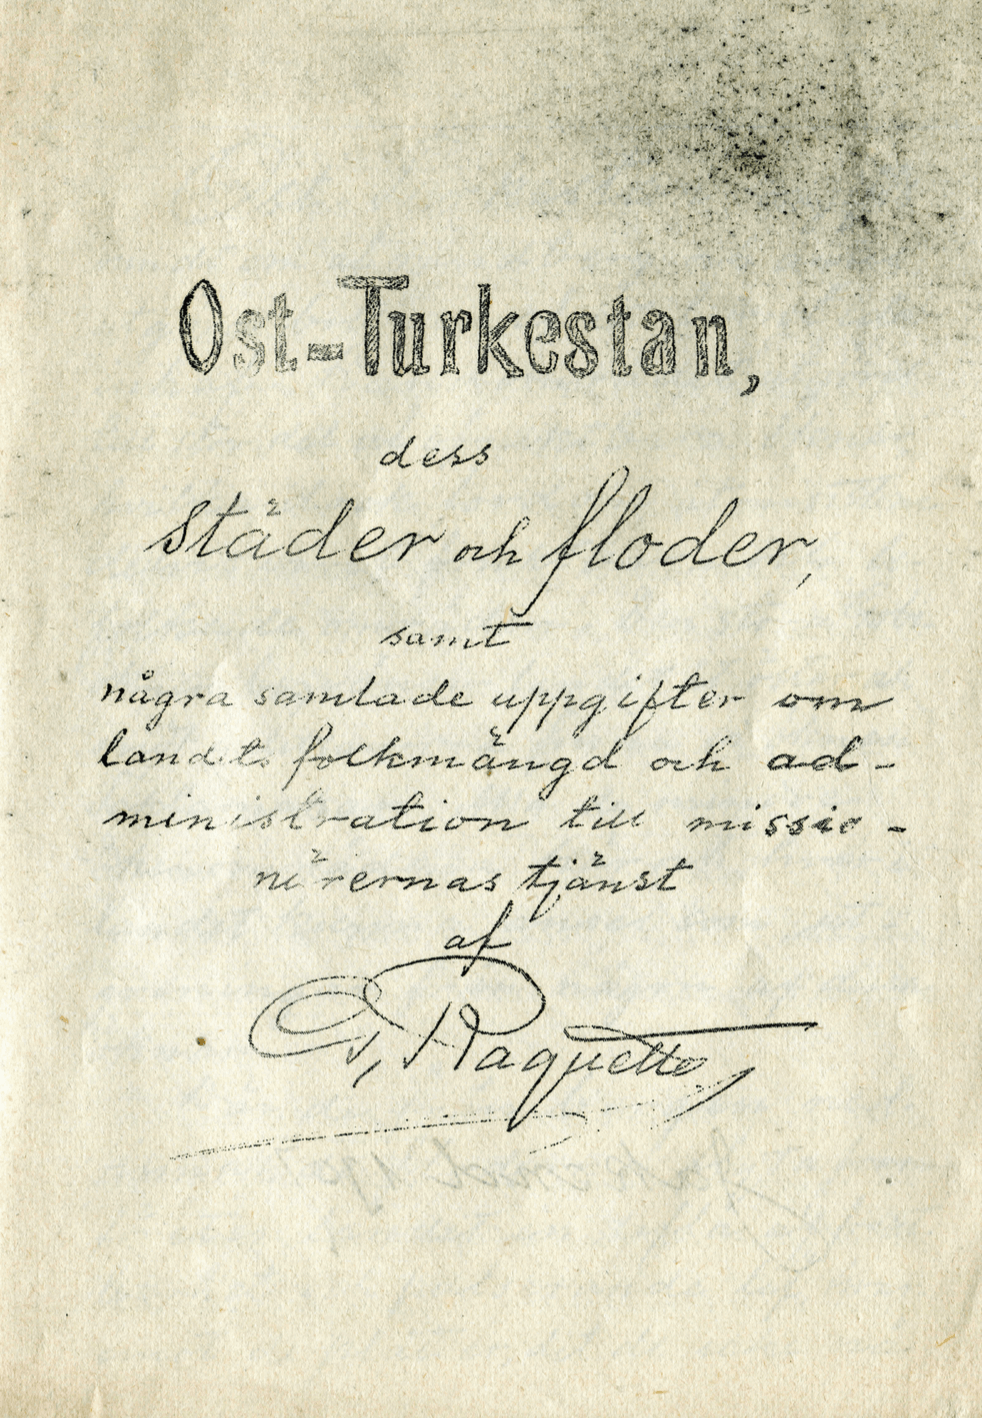 Ost-Turkestan,
dess
städer och floder,
samt
några samlade uppgifter om
landets folkmängd och ad-
ministration till missio-
närernas tjänst
af
G, Raquette